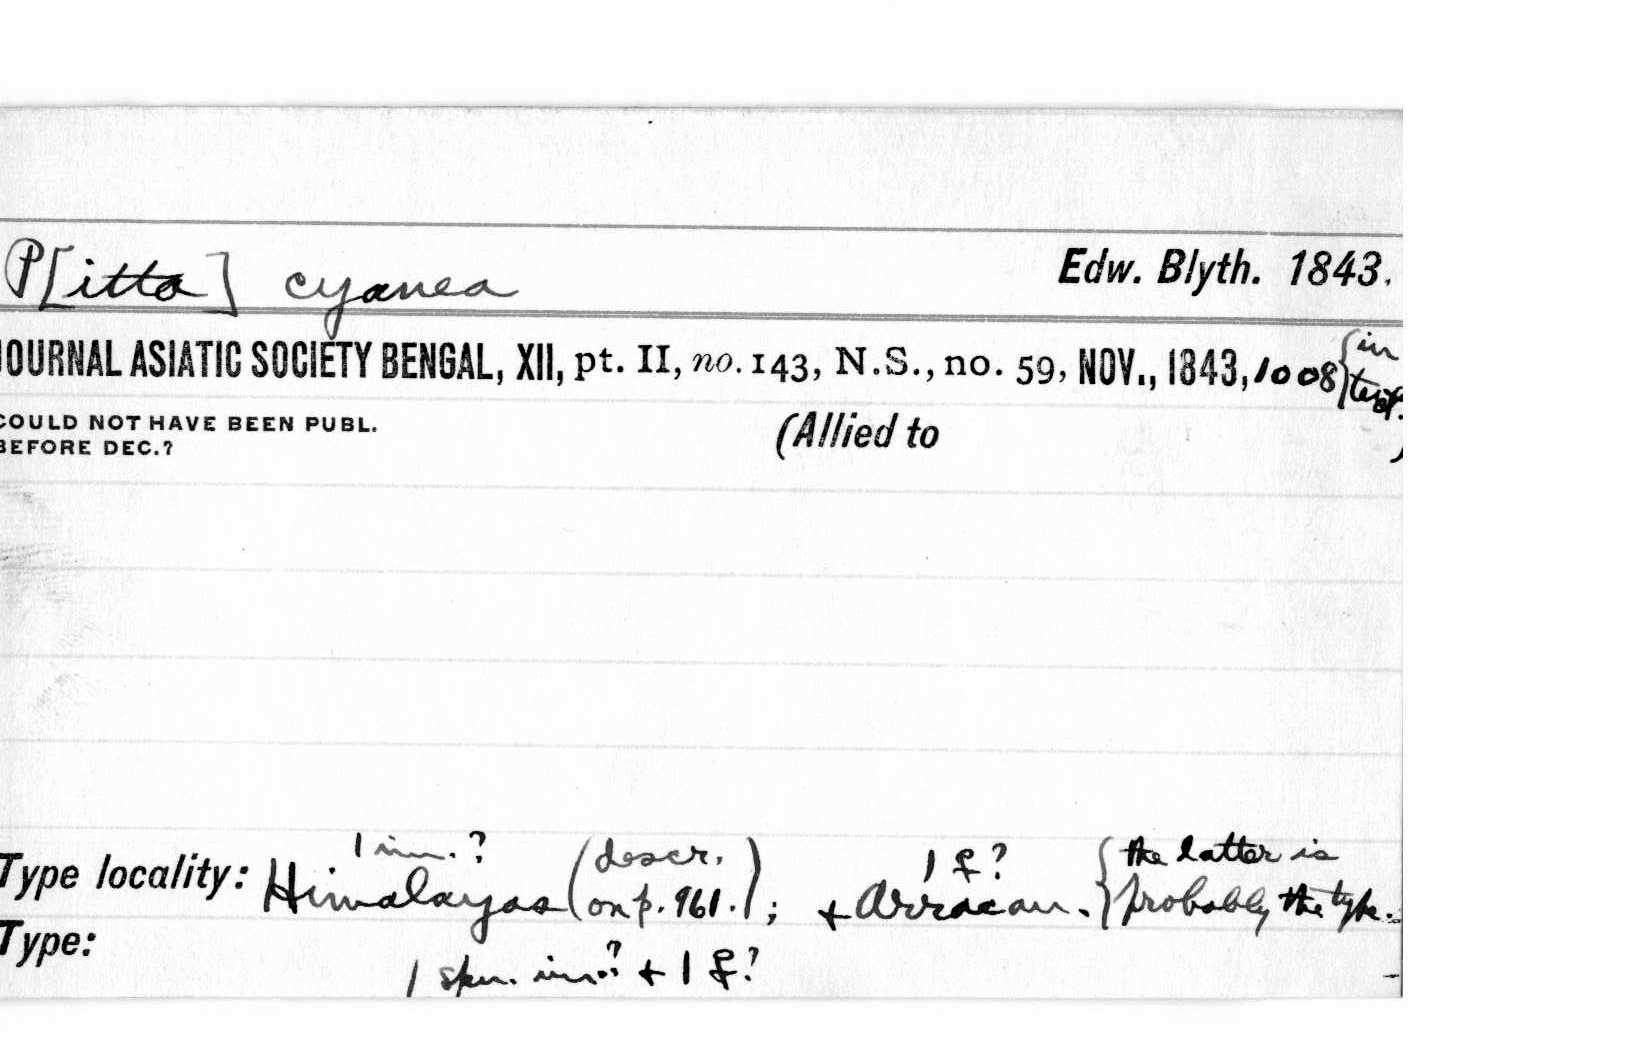 P[itta] cyanea
Edw. Blyth. 1843.
JOURNAL ASIATIC SOCIETY BENGAL, XII, pt. II, no. 143, N.S., no. 59, NOV., 1843, 1008 {in text.
COULD NOT HAVE BEEN PUBL.
BEFORE DEC.?
(Allied to )
1 im.? 1 ♀?
Type locality: Himalayas (descr. on p. 961.); + Arracan. {the latter is probably the type.
Type:
1 spm. im.? + 1 ♀?